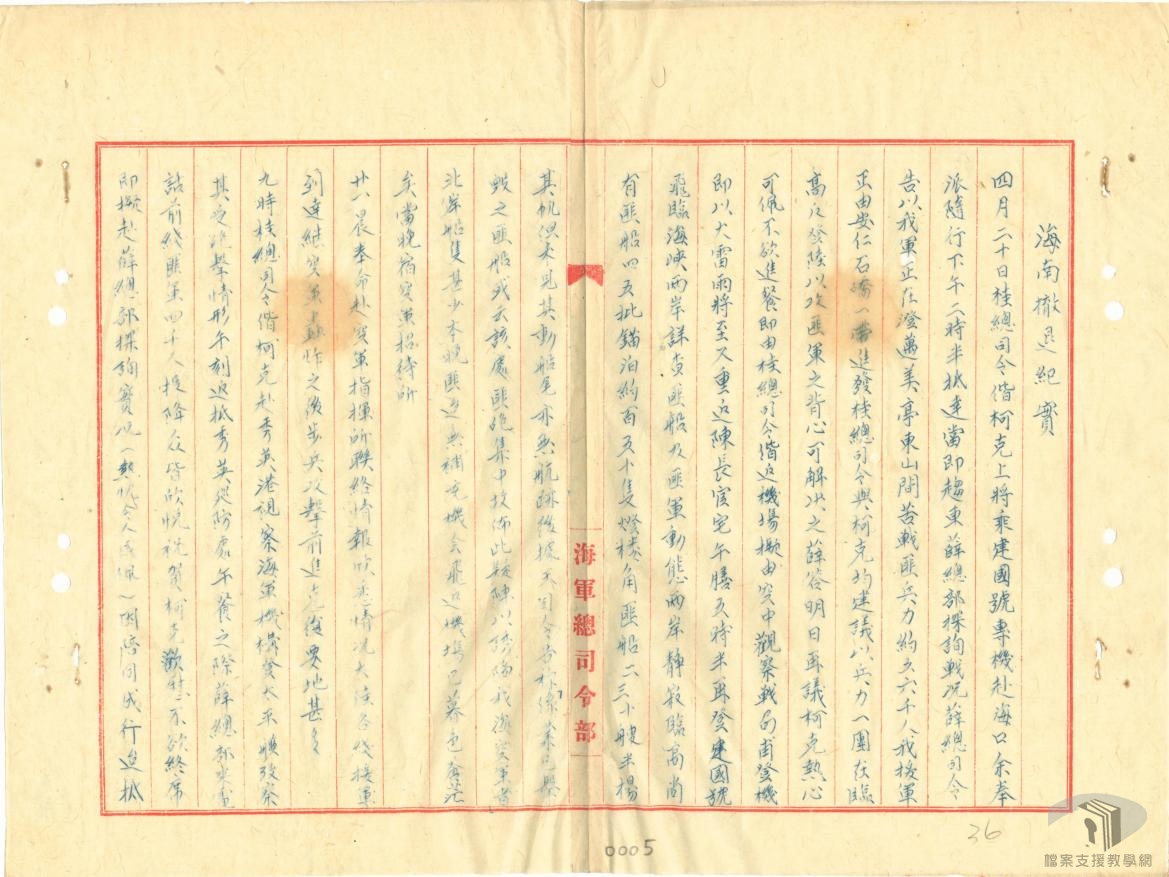 海南撤退紀實
四月二十日桂總司令偕柯克上將乘建國號專機赴海口余奉
派隨行下午二時半抵達當即趨東薛總部探詢戰況薛總司令
告以我軍正在澄邁美亭東山間苦戰匪兵力約五六千人我援軍
正由安仁石橋一帶進發桂總司令與柯克均建議以兵力一團在臨
高反登陸以攻匪軍之背心可解決之薛答明日再議柯克熱心
可佩不欲進餐即由桂總司令偕返機場擬由空中觀察戰局甫登機
即以大雷雨將至又重返陳長官宅午膳五時半再登建國號
飛臨海峽兩岸詳查匪船及匪軍動態兩岸靜寂臨高尚
有匪船四五批錨泊約百五十隻燈樓角匪船二三十艘半揚
其帆但未見其動船尾亦無航跡後據王司令告稱係業已擊
毀之匪船或云該處匪砲集中故佈此疑陣以誘騙我海空軍者
北岸船隻甚少本晚匪逆無補充機會飛返機場已暮色蒼茫
矣當晚宿空軍招待所
廿一晨奉命赴空軍指揮所聯絡情報欣悉情況大佳各伐援軍
到達繼空軍轟炸之後步兵攻擊前進克復要地甚多
九時桂總司令偕柯克赴秀英港視察海軍機構登太平艦致察
其受砲擊情形午刻返抵秀英巡防處午餐之際薛總部來電
話前線匪軍四千人投降众皆欣悅祝賀柯克歡慰不欲終席
即擬赴薛總部探詢實況（熱忱令人感佩）因陪同成行迨抵
海軍總司令部
0005
36
檔案支援教學網